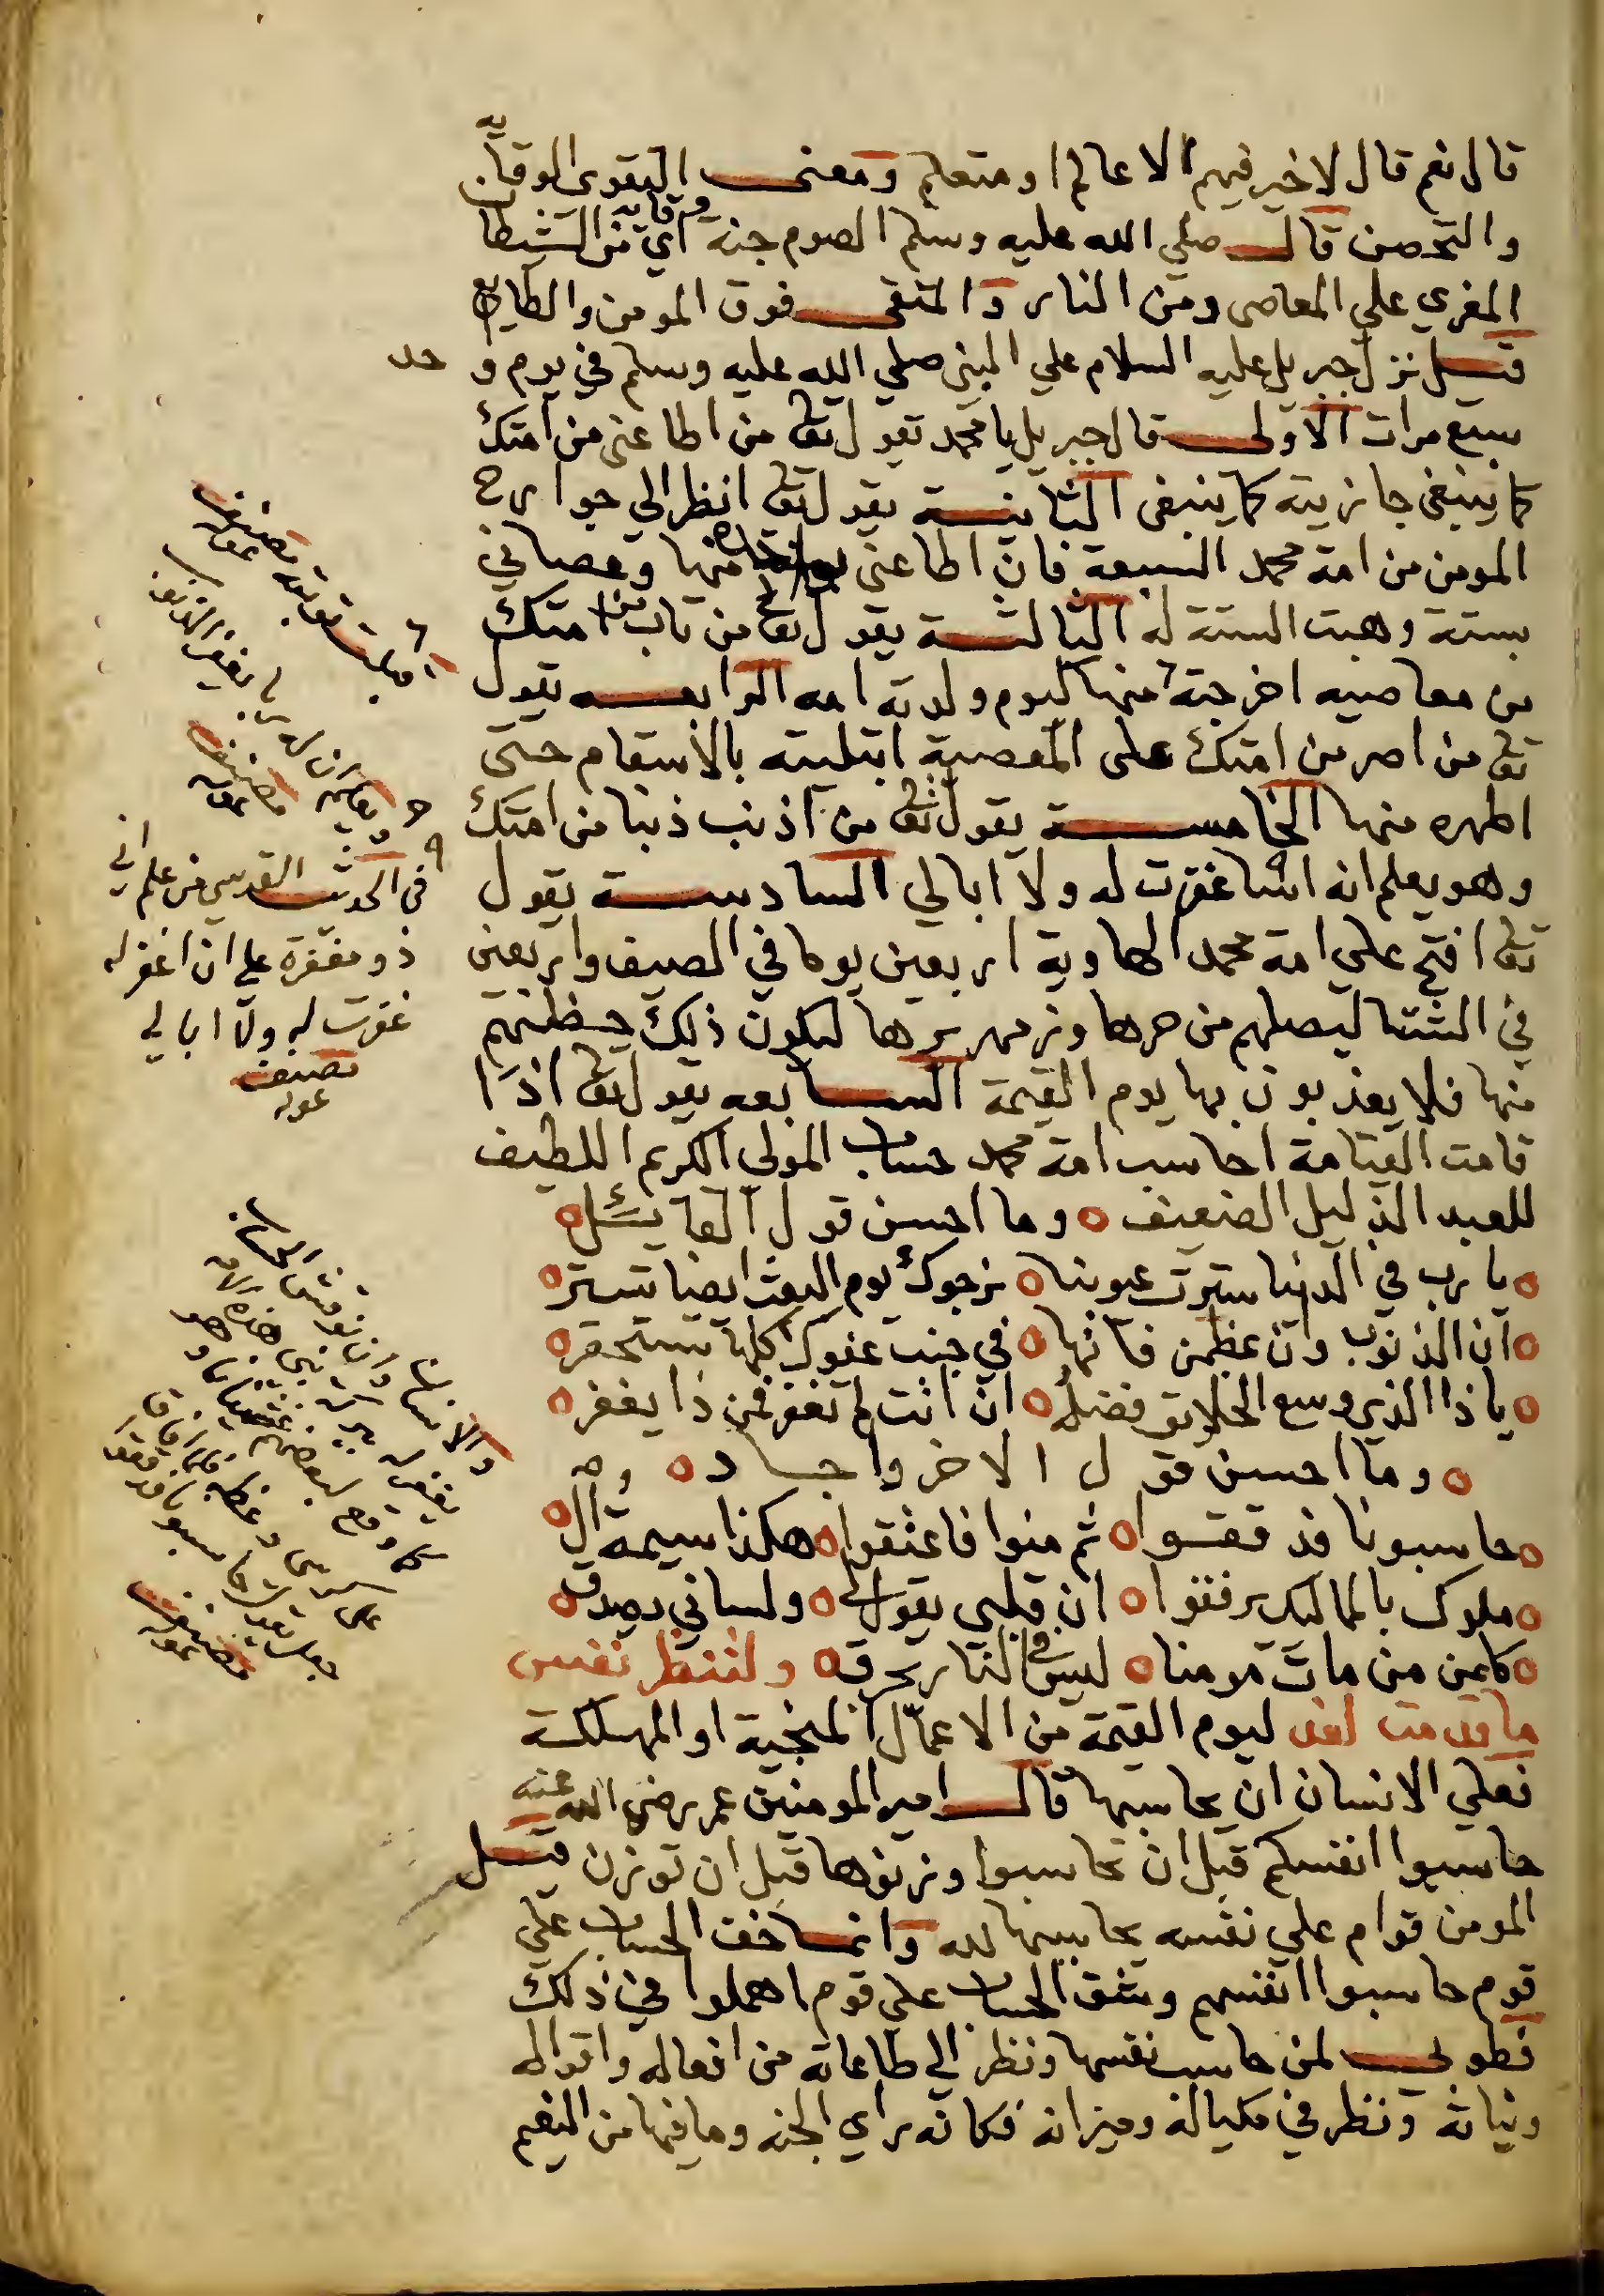 قال نعم قال لا خير فيهم الا عالم او متعلم ومعنى التقوى الوقاية
والتحصن قال صلي الله عليه وسلم الصوم جنة اي وقاية من الشيطان
المغري علي المعاصى ومن النار والمتقى فوق المومن والطايع
قيل نزل جبريل عليه السلام علي النبي صلي الله عليه وسلم في يوم واحد
سبع مرات الاولى قال جبريل يا محمد يقول تعا من اطاعنى من امتك
كما ينبغى جازيته كما ينبغى الثانية يقول تعا انظر الى جوارح
المومن من امة محمد السبعة فان اطاعنى بواحدة منها وعصاني
بستة وهبت الستة له الثالثة يقول تعا من تاب من امتك
من معاصيه اخرجته منها كيوم ولدته امه الرابعه يقول
تعا من اصر من امتك على المعصية ابتليته بالاسقام حتى
اطهره منها الخامسة يقول تعا من اذنب ذنبا من امتك
وهو يعلم انه اشا غفرت له ولا ابالي السادسة يقول
تعا افتح علي امة محمد الهاوية اربعين يوما في الصيف واربعين
في الشتا ليصلهم من حرها وزمهريرها ليكون ذلك حظهم
منها فلا يعذبون بها يوم القيمة السابعه يقول تعا اذا
قامت القيامة احاسب امة محمد حساب المولى الكريم اللطيف
للعبد الذليل الضعيف وما احسن قول القايل
يا رب في الدنيا سترت عيوبنا نرجوك يوم البعث ايضا تستر
ان الذنوب وان عظمن فانها في جنب عفوك كلها تستحقر
يا ذا الذي وسع الخلايق فضله ان انت لم تغفر فمن ذا يغفر
وما احسن قول الاخر واجاد
حاسبونا فدققوا ثم منوا فاعتقوا هكذا سيمة ال
ملوك بالمماليك يرفقوا ان قلبي يقول لي ولساني يصدق
كل من مات مومنا ليس في النار يحرق ولتنظر نفس
ما قدمت لغد ليوم القيمة من الاعمال المنجية او المهلكة
فعلي الانسان ان يحاسبها قال امير المومنين عمر رضي الله عنه
حاسبوا انفسكم قبل ان تحاسبوا وزنوها قبل ان توزن قيل
المومن قوام علي نفسه يحاسبها لله وانما خف الحساب علي
قوم حاسبوا انفسهم وشق الحساب علي قوم اهملوا في ذلك
فطوبى لمن حاسب نفسها ونظر الي طاعاته من افعاله واقواله
ونياته ونظر في مكياله وميزانه فكانه راي الجنه وما فيها من النعيم
في الحديث القدسي من علم اني
ذو مغفرة على ان اغفر له
غفرت له ولا ابالي